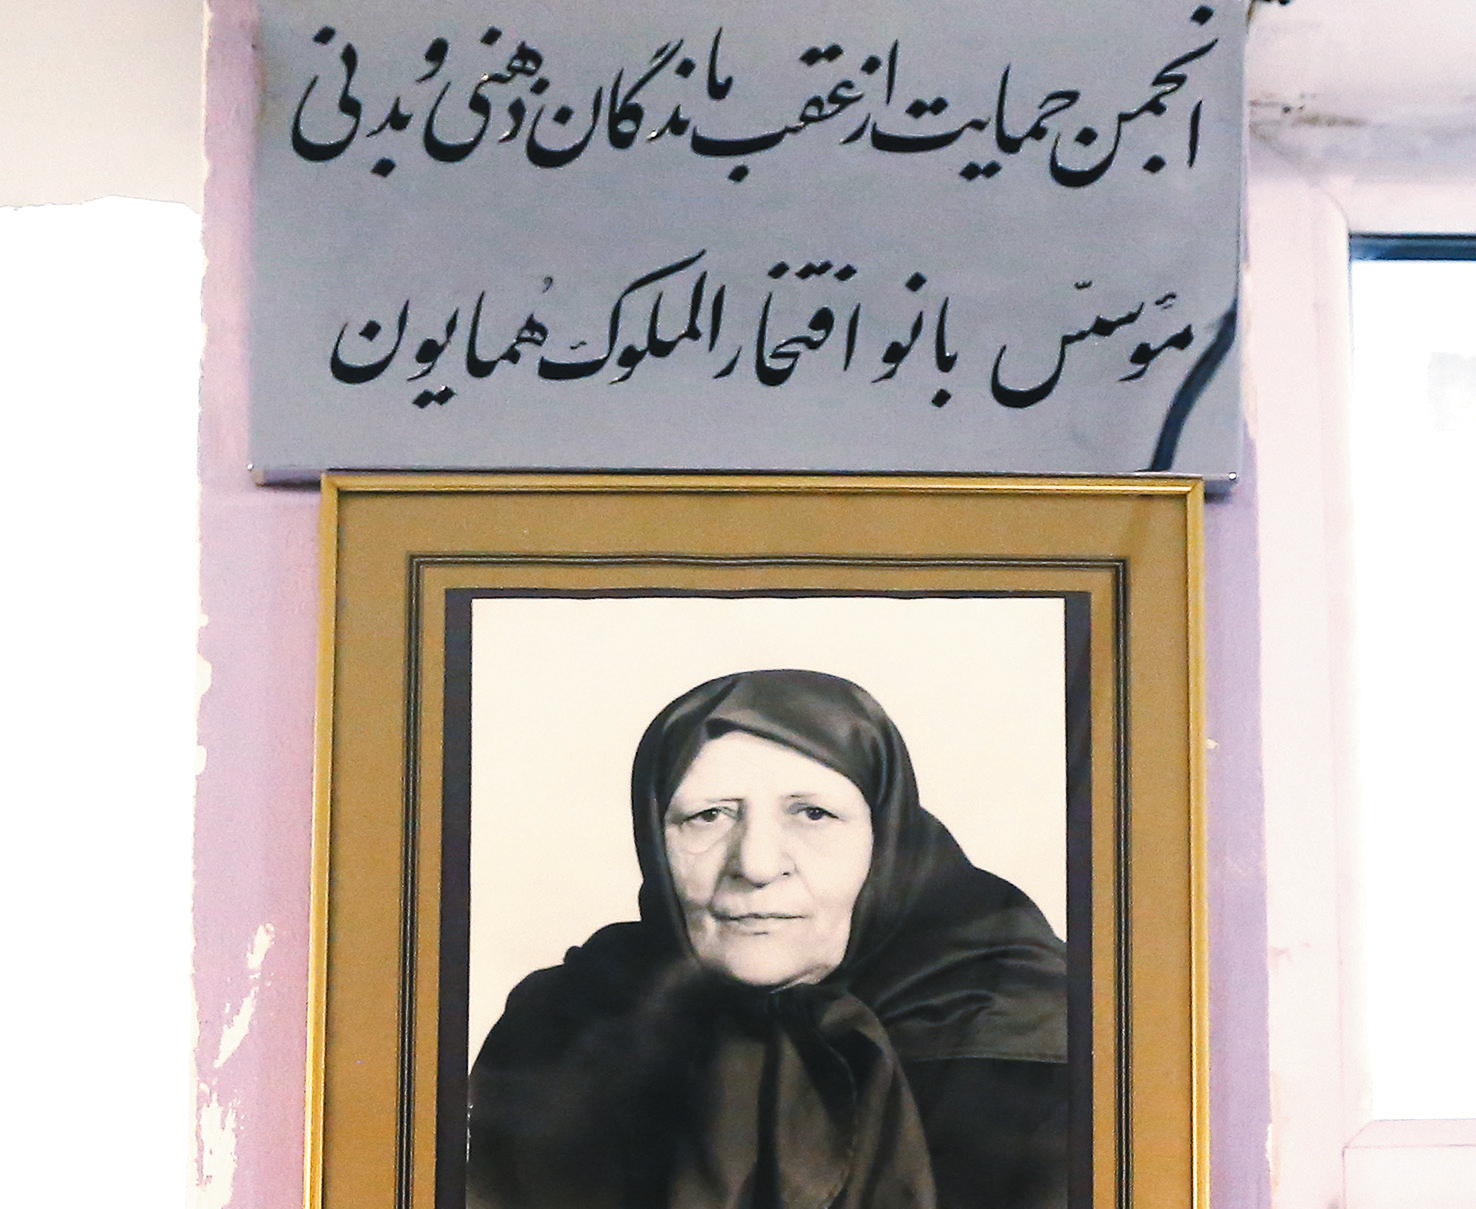 انجمن حمایت از عقب ماندگان ذهنی و بدنی
مؤسّس بانو افتخار الملوک هُمایون